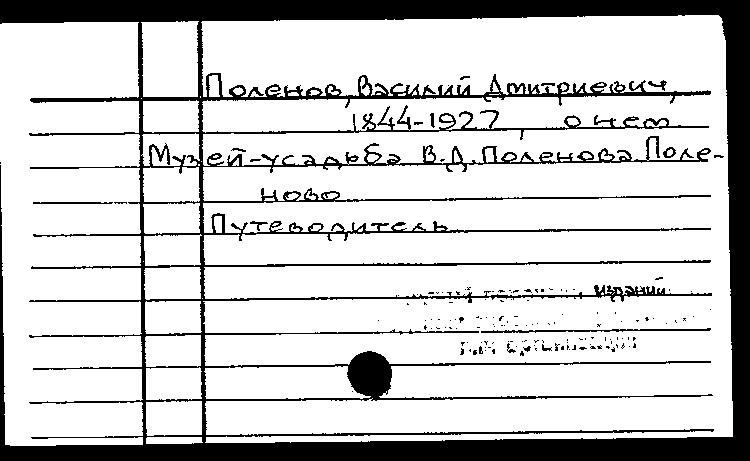 Поленов, Василий Дмитриевич,
1844-1927, о нем
Музей-усадьба В.Д. Поленова Поле-
ново
Путеводитель
изданий
организации